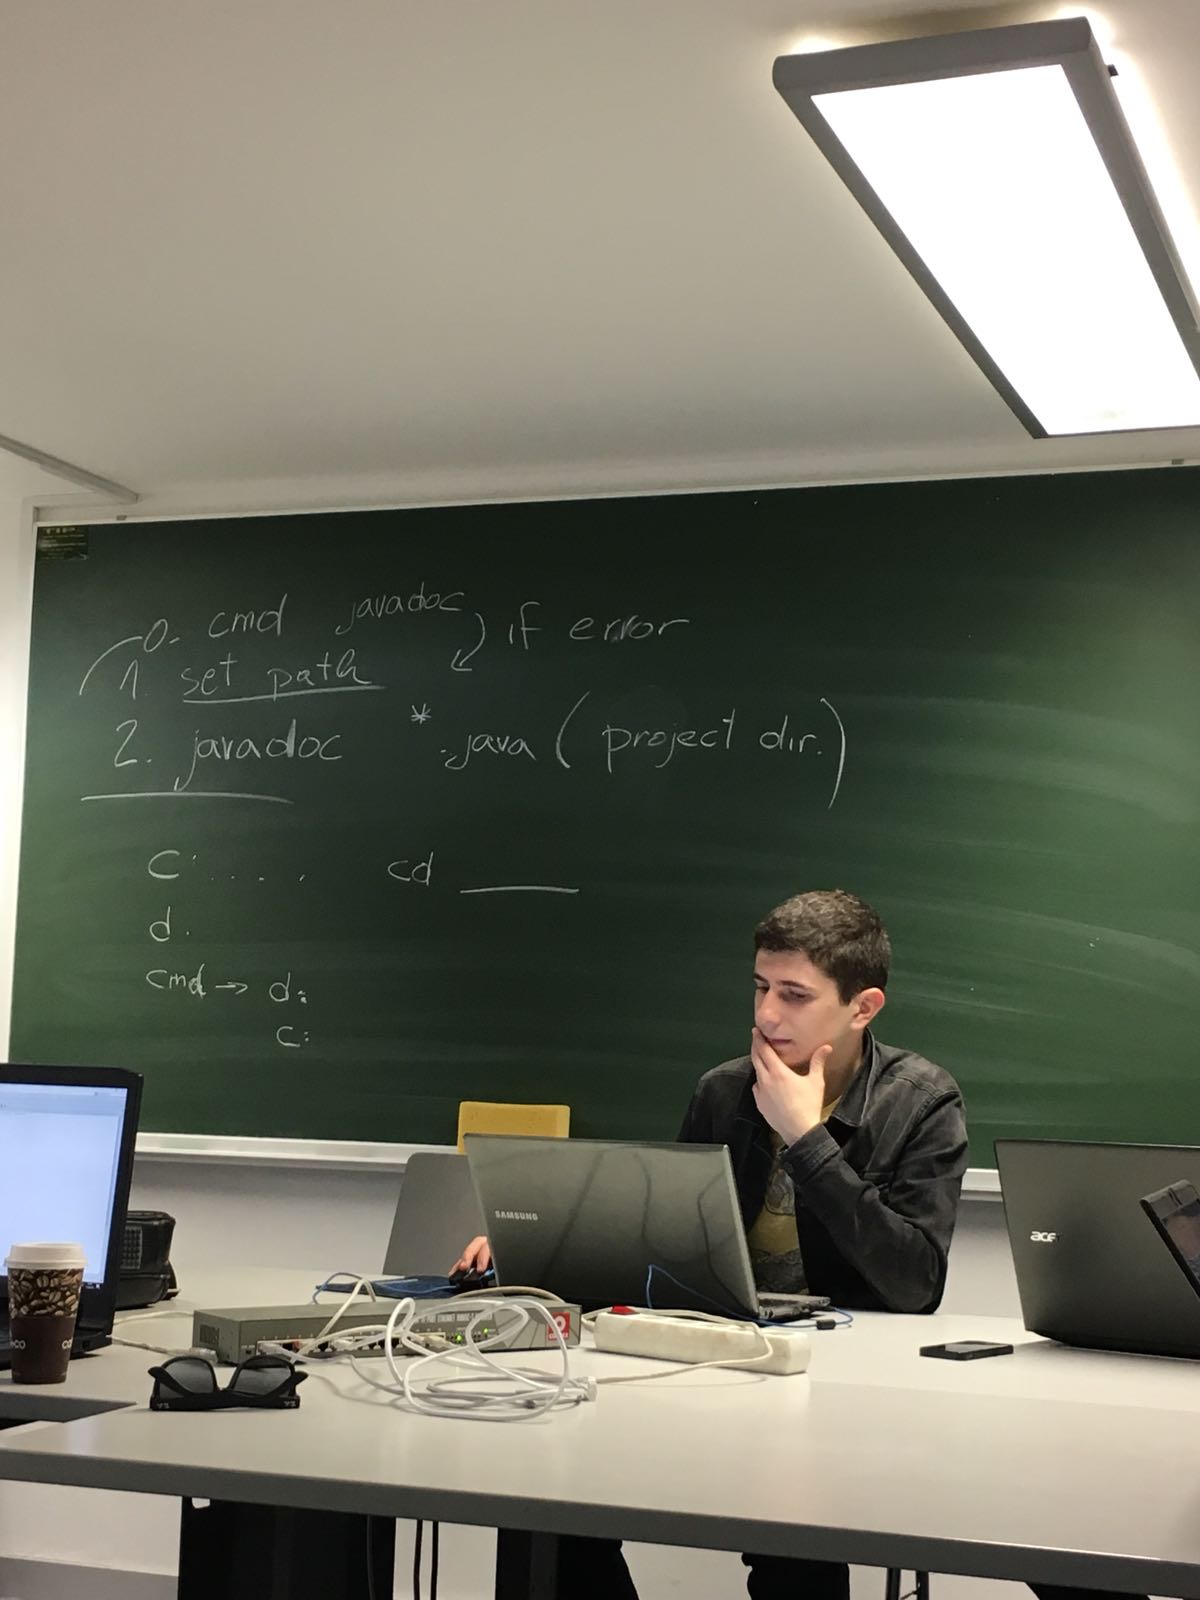 0. cmd javadoc if error
1. set path
2. javadoc *.java ( project dir. )
C: . . . . cd ____
d.
cmd → d:
c:
SAMSUNG
acer